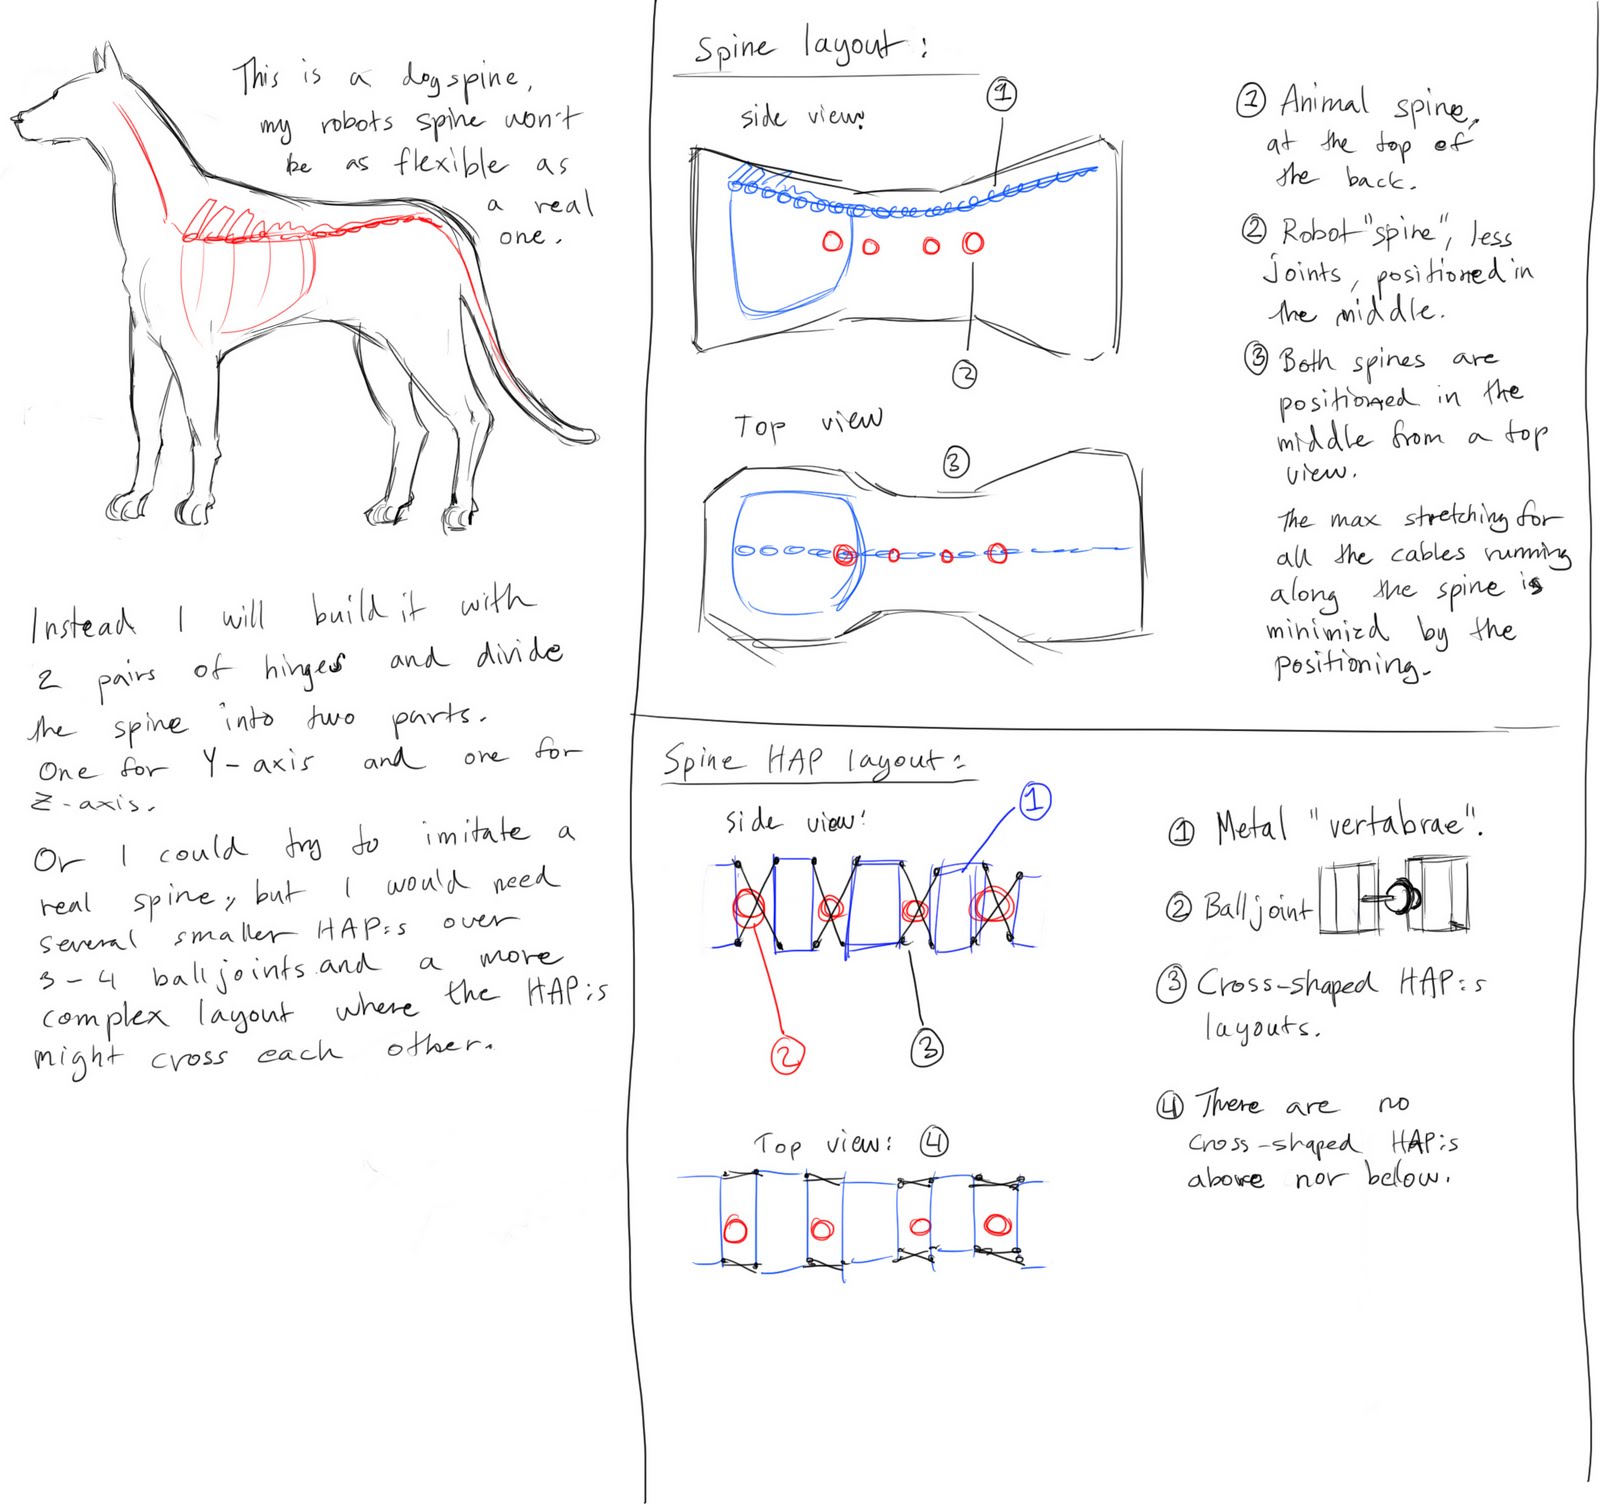 This is a dogspine,
my robots spine won't
be as flexible as
a real
one.
Instead I will build it with
2 pairs of hinges and divide
the spine into two parts.
One for Y-axis and one for
Z-axis.
Or I could try to imitate a
real spine, but I would need
several smaller HAP:s over
3-4 balljoints and a more
complex layout where the HAP:s
might cross each other.
Spine layout:
side view:
1
2
Top view
3
① Animal spine,
at the top of
the back.
② Robot "spine", less
joints, positioned in
the middle.
③ Both spines are
positioned in the
middle from a top
view.
The max stretching for
all the cables running
along the spine is
minimizd by the
positioning.
Spine HAP layout:
side view:
1
2
3
Top view: ④
① Metal "vertabrae".
② Balljoint
③ Cross-shaped HAP:s
layouts.
④ There are no
cross-shaped HAP:s
above nor below.